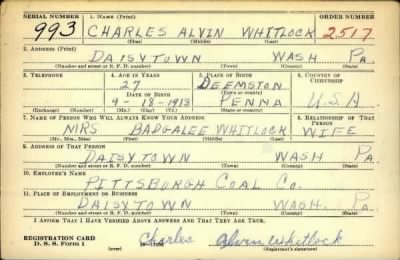 SERIAL NUMBER 1. NAME (Print) ORDER NUMBER
993 CHARLES ALVIN WHITLOCK 2517
(First) (Middle) (Last)
2. ADDRESS (Print)
DAISYTOWN WASH PA.
(Number and street or R. F. D. number) (Town) (County) (State)
3. TELEPHONE 4. AGE IN YEARS 5. PLACE OF BIRTH 6. COUNTRY OF CITIZENSHIP
27 DEEMSTON
DATE OF BIRTH (Town or county)
9-18-1913 PENNA U.S.A
(Exchange) (Number) (Mo.) (Day) (Yr.) (State or country)
7. NAME OF PERSON WHO WILL ALWAYS KNOW YOUR ADDRESS 8. RELATIONSHIP OF THAT PERSON
MRS BADGALEE WHITLOCK WIFE
(Mr., Mrs., Miss) (First) (Middle) (Last)
9. ADDRESS OF THAT PERSON
DAISYTOWN WASH PA.
(Number and street or R. F. D. number) (Town) (County) (State)
10. EMPLOYER'S NAME
PITTSBURGH COAL CO.
11. PLACE OF EMPLOYMENT OR BUSINESS
DAISYTOWN WASH. PA.
(Number and street or R. F. D. number) (Town) (County) (State)
I AFFIRM THAT I HAVE VERIFIED ABOVE ANSWERS AND THAT THEY ARE TRUE.
REGISTRATION CARD
D. S. S. Form 1 (over) Charles Alvin Whitlock
(Registrant's signature)